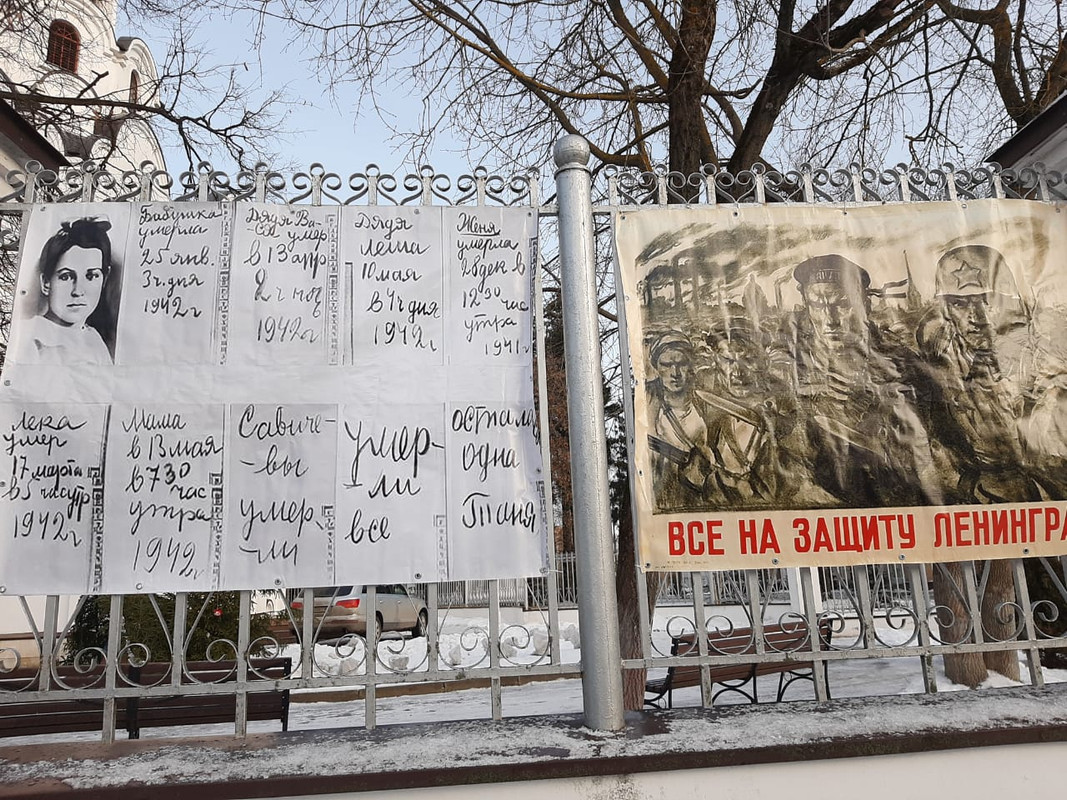 Бабушка
умерла
25 янв.
3ч. дня
1942г
Дядя Ва-
ся умер
в 13 апр
2 ч ноч
1942г
Дядя
Леша
10 мая
в 4ч дня
1942г
Женя
умерла
28 дек в
12 30 час
утра
1941г
Лека
умер
17 марта
в 5 час утр
1942г
Мама
в 13 мая
в 7 30
час
утра
1942г
Савиче-
-вы
умер-
-ли
умер-
ли
все
Осталась
одна
Таня
ВСЕ НА ЗАЩИТУ ЛЕНИНГРА
ЯБФ